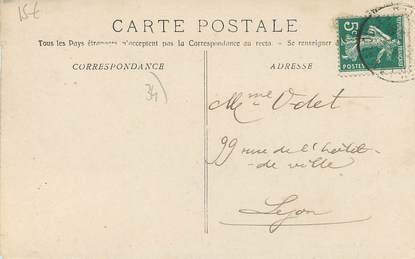 15€
CARTE POSTALE
Tous les Pays étrangers n'acceptent pas la Correspondance au recto. — Se renseigner à
CORRESPONDANCE
ADRESSE
34
5c
POSTES
Mme Odet
99 rue de l'hôtel-
de ville
Lyon